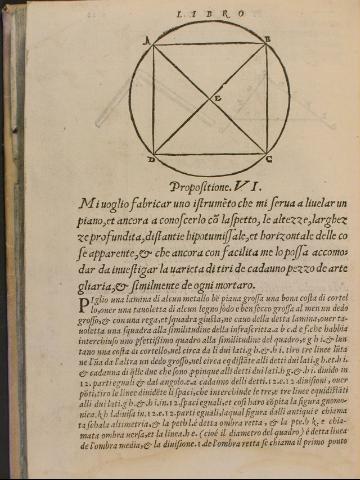 LIBRO
A B
E
D C
Propositione. VI.
Mi uoglio fabricar uno istrumēto che mi serua a liuelar un
piano, et ancora a conoscerlo cō laspetto, le altezze, larghez
ze profundita, distantie hipotumissale, et horizontale delle co
se apparente, & che ancora con facilita me lo possa accomo
dar da inuestigar la uarieta di tiri de cadauno pezzo de arte
gliaria, & similmente de ogni mortaro.
Piglio una lamina di alcun metallo bē piana grossa una bona costa di cortel
lo, ouer una tauoletta di alcun legno sodo e ben secco grossa al men un dedo
grosso, & con una rega, et squadra giusta, ne cauo della detta lamina, ouer ta-
uoletta una squadra alla similitudine della infrascritta. a b c d e f. che habbia
interchiuso uno pfettissimo quadro alla similitudine del quadro, e g h i. & lun
tano una costa di cortello, uel circa da li dui lati. g h. & h i. tiro tre linee lūta
ne l'ūa da l'altra un dedo grosso, uel circa eqdistāte alli detti dui lati. g h. et h i.
& cadauna di qlle due che sono ppinque alli detti dui lati. h g. & h i. diuido in
12. parti eguali & dal angolo. e. a cadauno delli detti. 12. e 12. diuisioni, ouer
pōti, tiro le linee diuidēte li spacij, che interchiude le tre, et tre linee equidistāti
alli dui lati. g h. & h i. in. 12. spacij eguali, et cosi haro cōpita la figura gnomo-
nica. k h l. diuisa in. 12. e. 12. parti eguali, laqual figura dalli antiqui e chiama
ta schala altimetria, & la pte. h l. e detta ombra retta, & la pte. h k. e chia-
mata ombra uersa, et la linea. h e. (cioe il diametro del quadro) è detta linea
de l'ombra media, & la diuisione. 1. de l'ombra retta se chiama il primo ponto